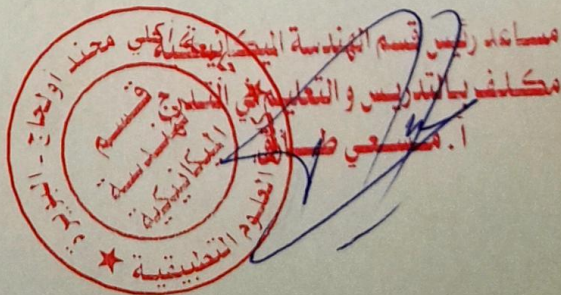 مساعد رئيس قسم الهندسة الميكانيكية
مكلف بالتدريس و التعليم في التدرج
أ. مسعي
أكلي محند أولحاج - البويرة
العلوم التطبيقية
قسم
الهندسة
الميكانيكية